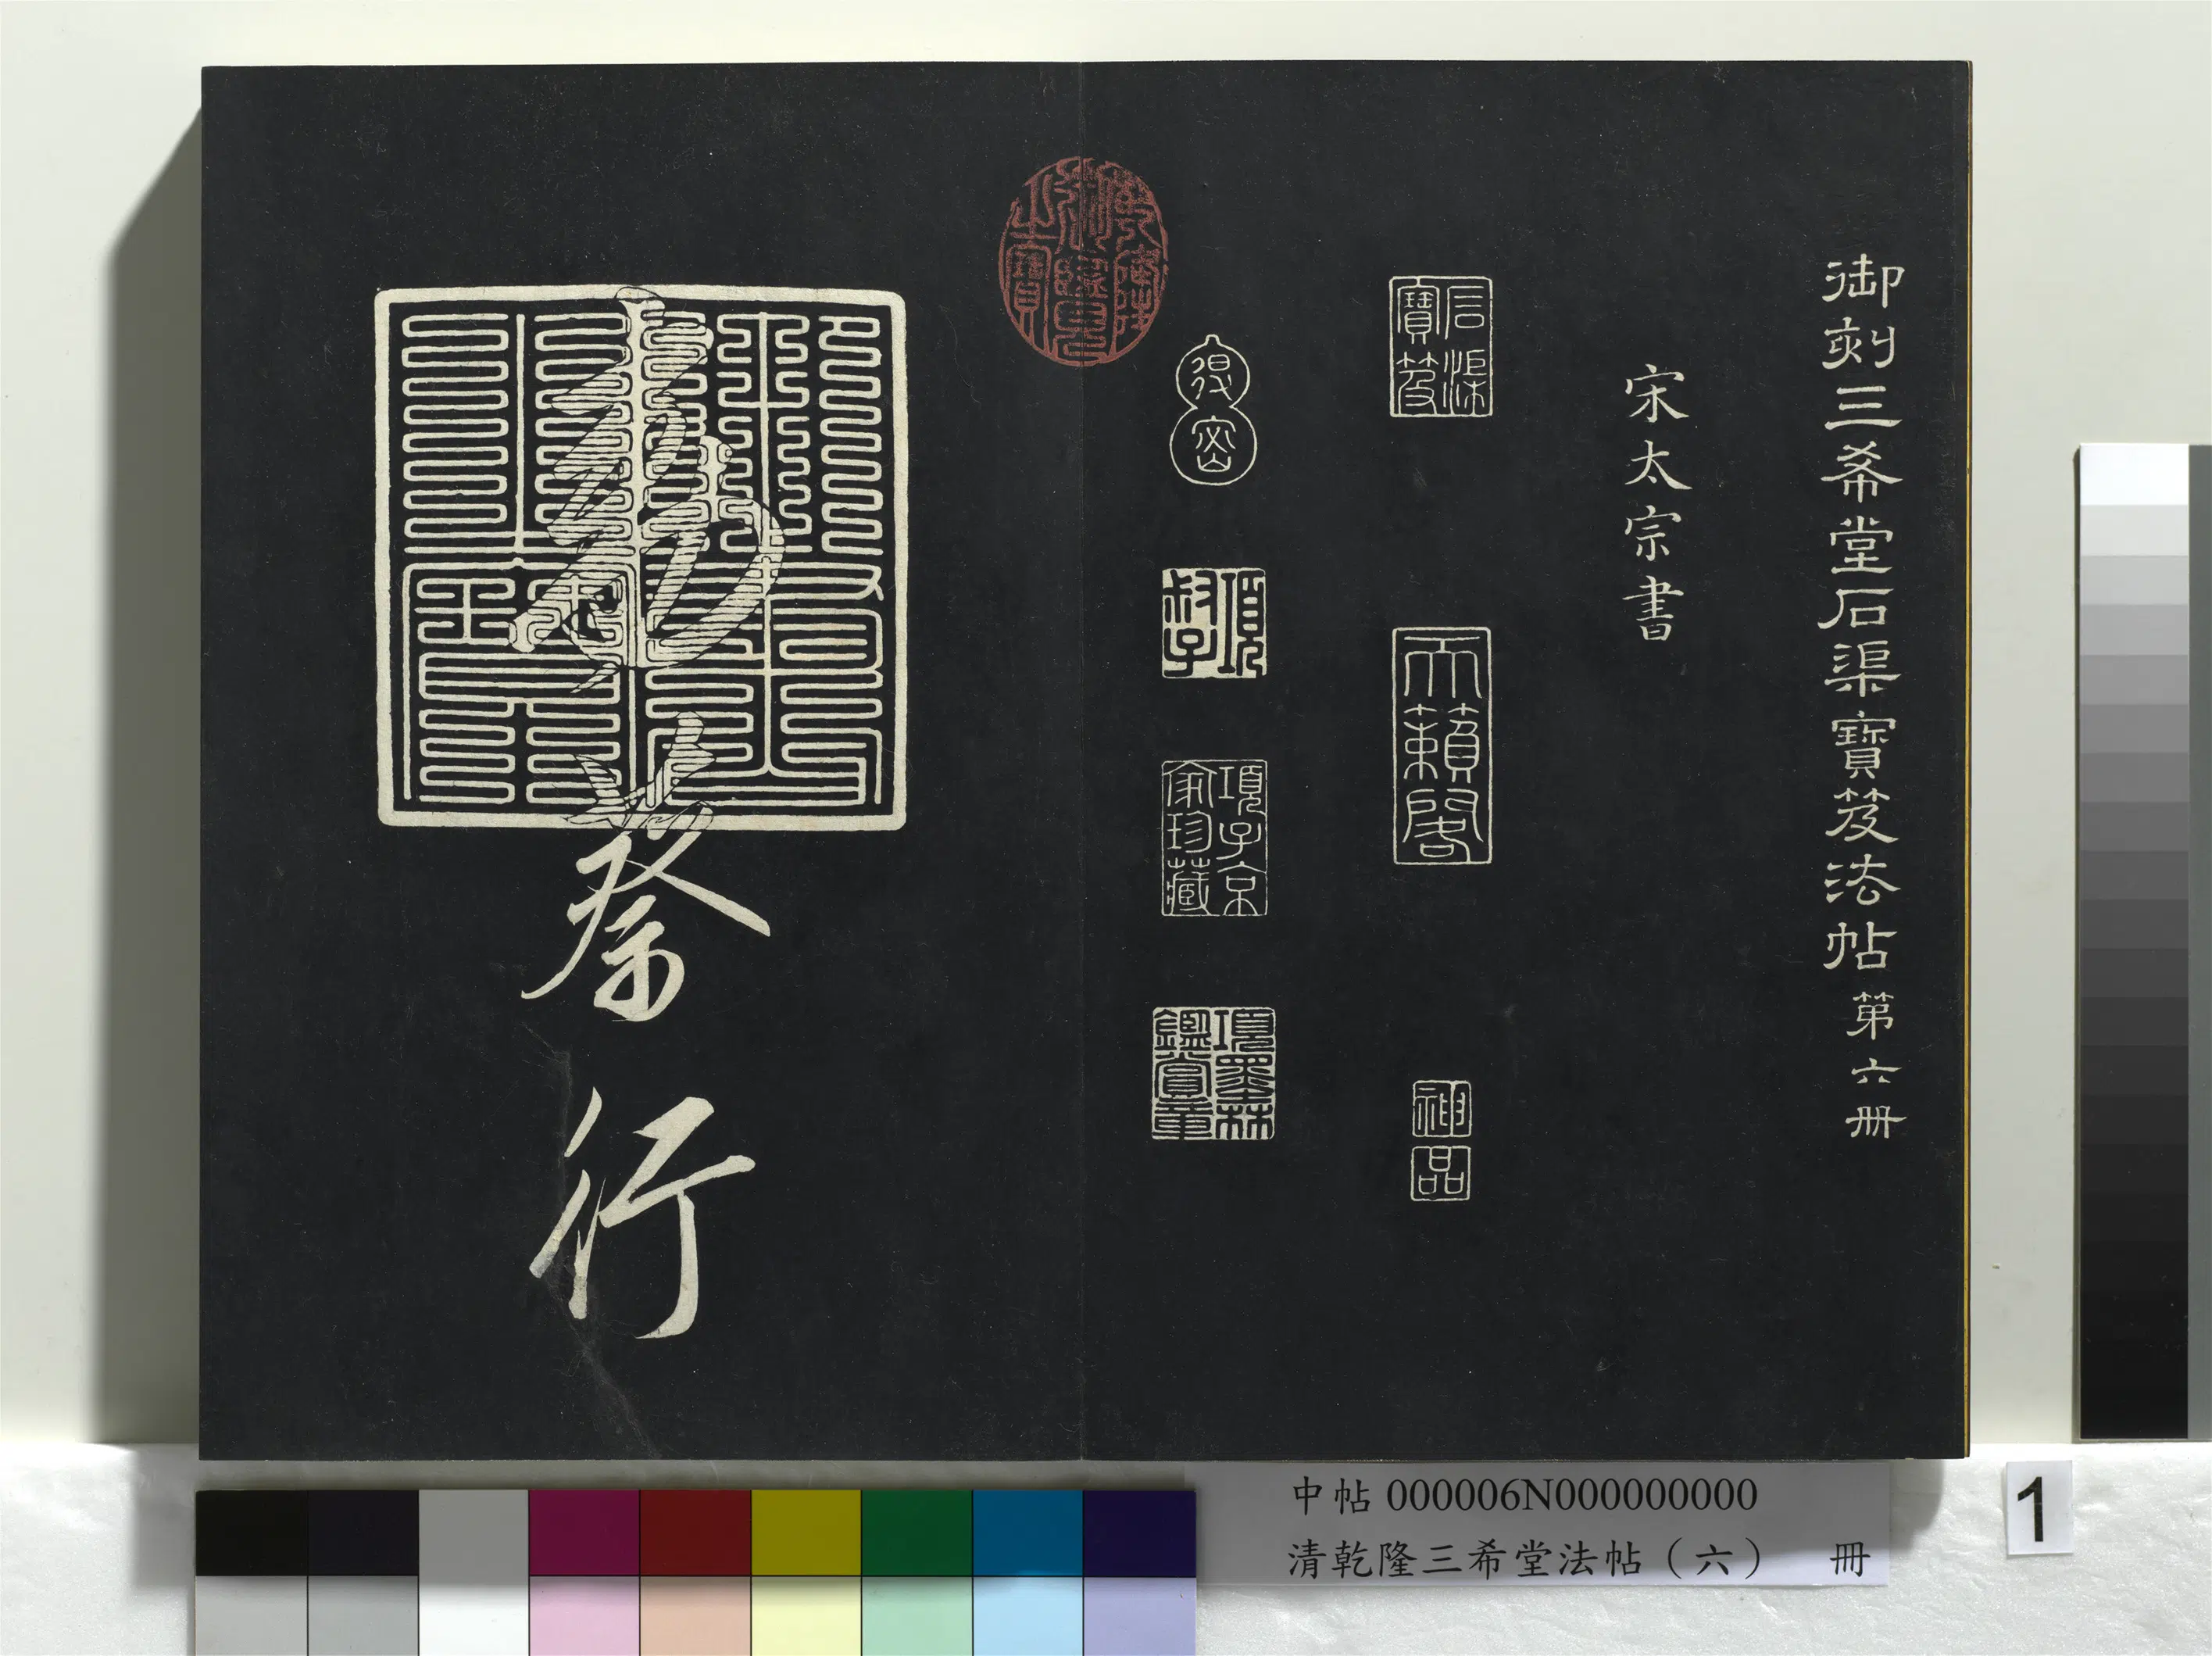 御刻三希堂石渠寶笈法帖第六冊
宋太宗書
石渠寶笈
天籟閣
神品
項叔子
項子京家珍藏
項墨林鑑賞章
乾隆御覽之寶
蔡行
中帖 000006N000000000
清乾隆三希堂法帖（六） 冊
1